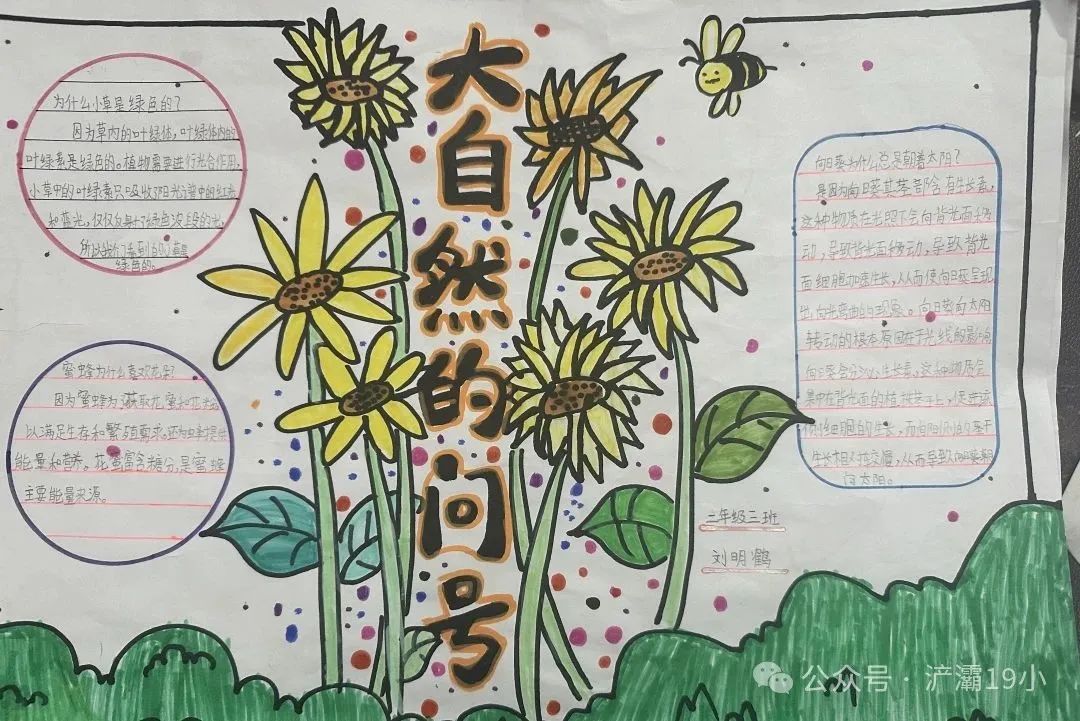 大自然的问号
为什么小草是绿色的?
因为草内的叶绿体,叶绿体内的
叶绿素是绿色的。植物需要进行光合作用,
小草中的叶绿素只吸收阳光谱中的红光
和蓝光,仅仅反射了绿色波段的光,
所以我们看到的小草是
绿色的。
蜜蜂为什么喜欢花朵?
因为蜜蜂为了获取花蜜和花粉
以满足生存和繁殖需求。
能量和营养。花蜜富含糖分,是蜜蜂
主要能量来源。
向日葵为什么总是朝着太阳?
是因为向日葵其茎部含有生长素,
这种物质在光照下会向背光面移
动,导致背光面移动,导致背光
面细胞加速生长,从而使向日葵呈现
出向光弯曲的现象。向日葵向太阳
转动的根本原因在于光线的影响
向日葵会分泌生长素,这种物质会
集中在背光面的植株茎上,促进这
侧细胞的生长,而向阳侧的茎干
生长相对较慢,从而导致向日葵朝
向太阳。
二年级三班
刘明鹤
公众号·浐灞19小